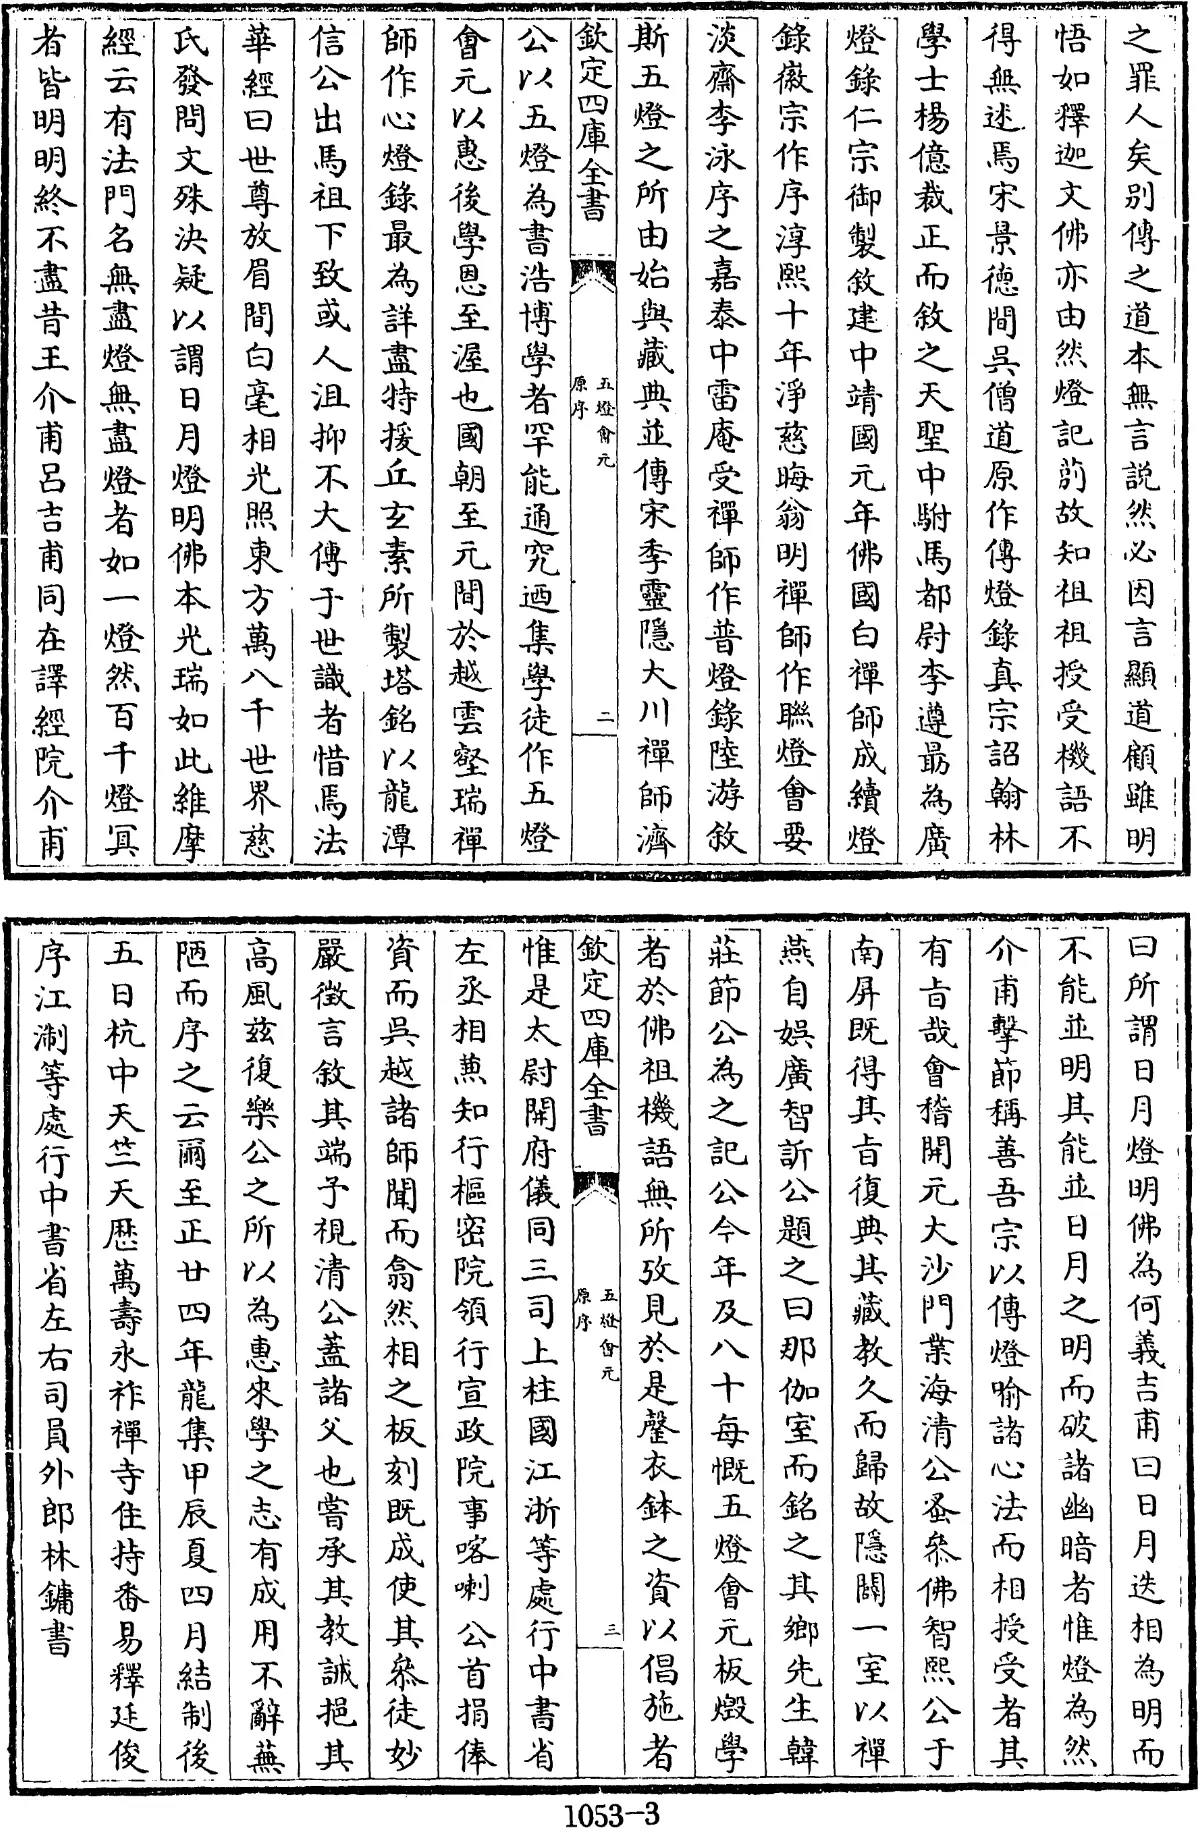 之罪人矣別傳之道本無言說然必因言顯道顧雖明
悟如釋迦文佛亦由然燈記莂故知祖祖授受機語不
得無述焉宋景德間吳僧道原作傳燈錄真宗詔翰林
學士楊億裁正而敘之天聖中駙馬都尉李遵勗為廣
燈錄仁宗御製敘建中靖國元年佛國白禪師成續燈
錄徽宗作序淳熙十年淨慈晦翁明禪師作聯燈會要
淡齋李泳序之嘉泰中雷庵受禪師作普燈錄陸游敘
斯五燈之所由始與藏典並傳宋季靈隱大川禪師濟
欽定四庫全書
五燈會元
原序
二
公以五燈為書浩博學者罕能通究迺集學徒作五燈
會元以惠後學恩至渥也國朝至元間於越雲壑瑞禪
師作心燈錄最為詳盡特援丘玄素所製塔銘以龍潭
信公出馬祖下致或人沮抑不大傳于世識者惜焉法
華經曰世尊放眉間白毫相光照東方萬八千世界慈
氏發問文殊決疑以謂日月燈明佛本光瑞如此維摩
經云有法門名無盡燈無盡燈者如一燈然百千燈冥
者皆明明終不盡昔王介甫呂吉甫同在譯經院介甫
曰所謂日月燈明佛為何義吉甫曰日月迭相為明而
不能並明其能並日月之明而破諸幽暗者惟燈為然
介甫擊節稱善吾宗以傳燈喻諸心法而相授受者其
有旨哉會稽開元大沙門業海清公蚤叅佛智熙公于
南屏既得其旨復典其藏教久而歸故隱闢一室以禪
燕自娛廣智訢公題之曰那伽室而銘之其鄉先生韓
莊節公為之記公今年及八十每慨五燈會元板燬學
者於佛祖機語無所攷見於是罄衣鉢之資以倡施者
欽定四庫全書
五燈會元
原序
三
惟是太尉開府儀同三司上柱國江浙等處行中書省
左丞相兼知行樞密院領行宣政院事喀喇公首捐俸
資而吳越諸師聞而翕然相之板刻既成使其叅徒妙
嚴徵言敘其端予視清公蓋諸父也嘗承其教誡挹其
高風茲復樂公之所以為惠來學之志有成用不辭蕪
陋而序之云爾至正廿四年龍集甲辰夏四月結制後
五日杭中天竺天歷萬壽永祚禪寺住持番易釋廷俊
序江淛等處行中書省左右司員外郎林鏞書
1053-3